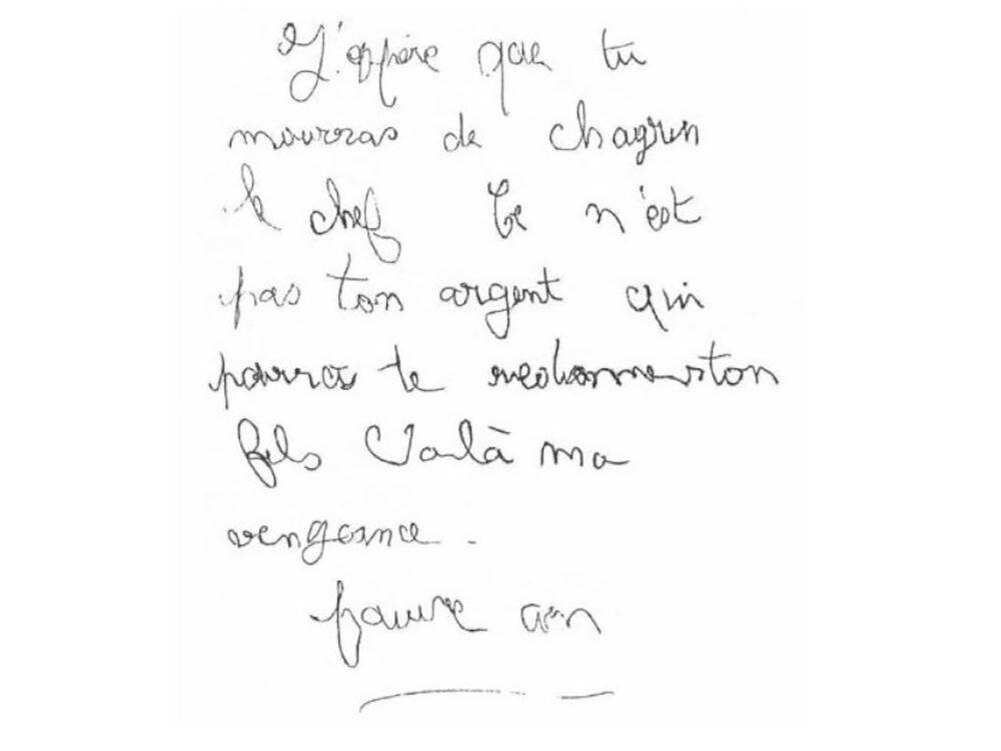 J'espère que tu
mourras de chagrin
le chef Ce n'est
pas ton argent qui
pourras te redonner ton
fils Voilà ma
vengeance.
pauvre con